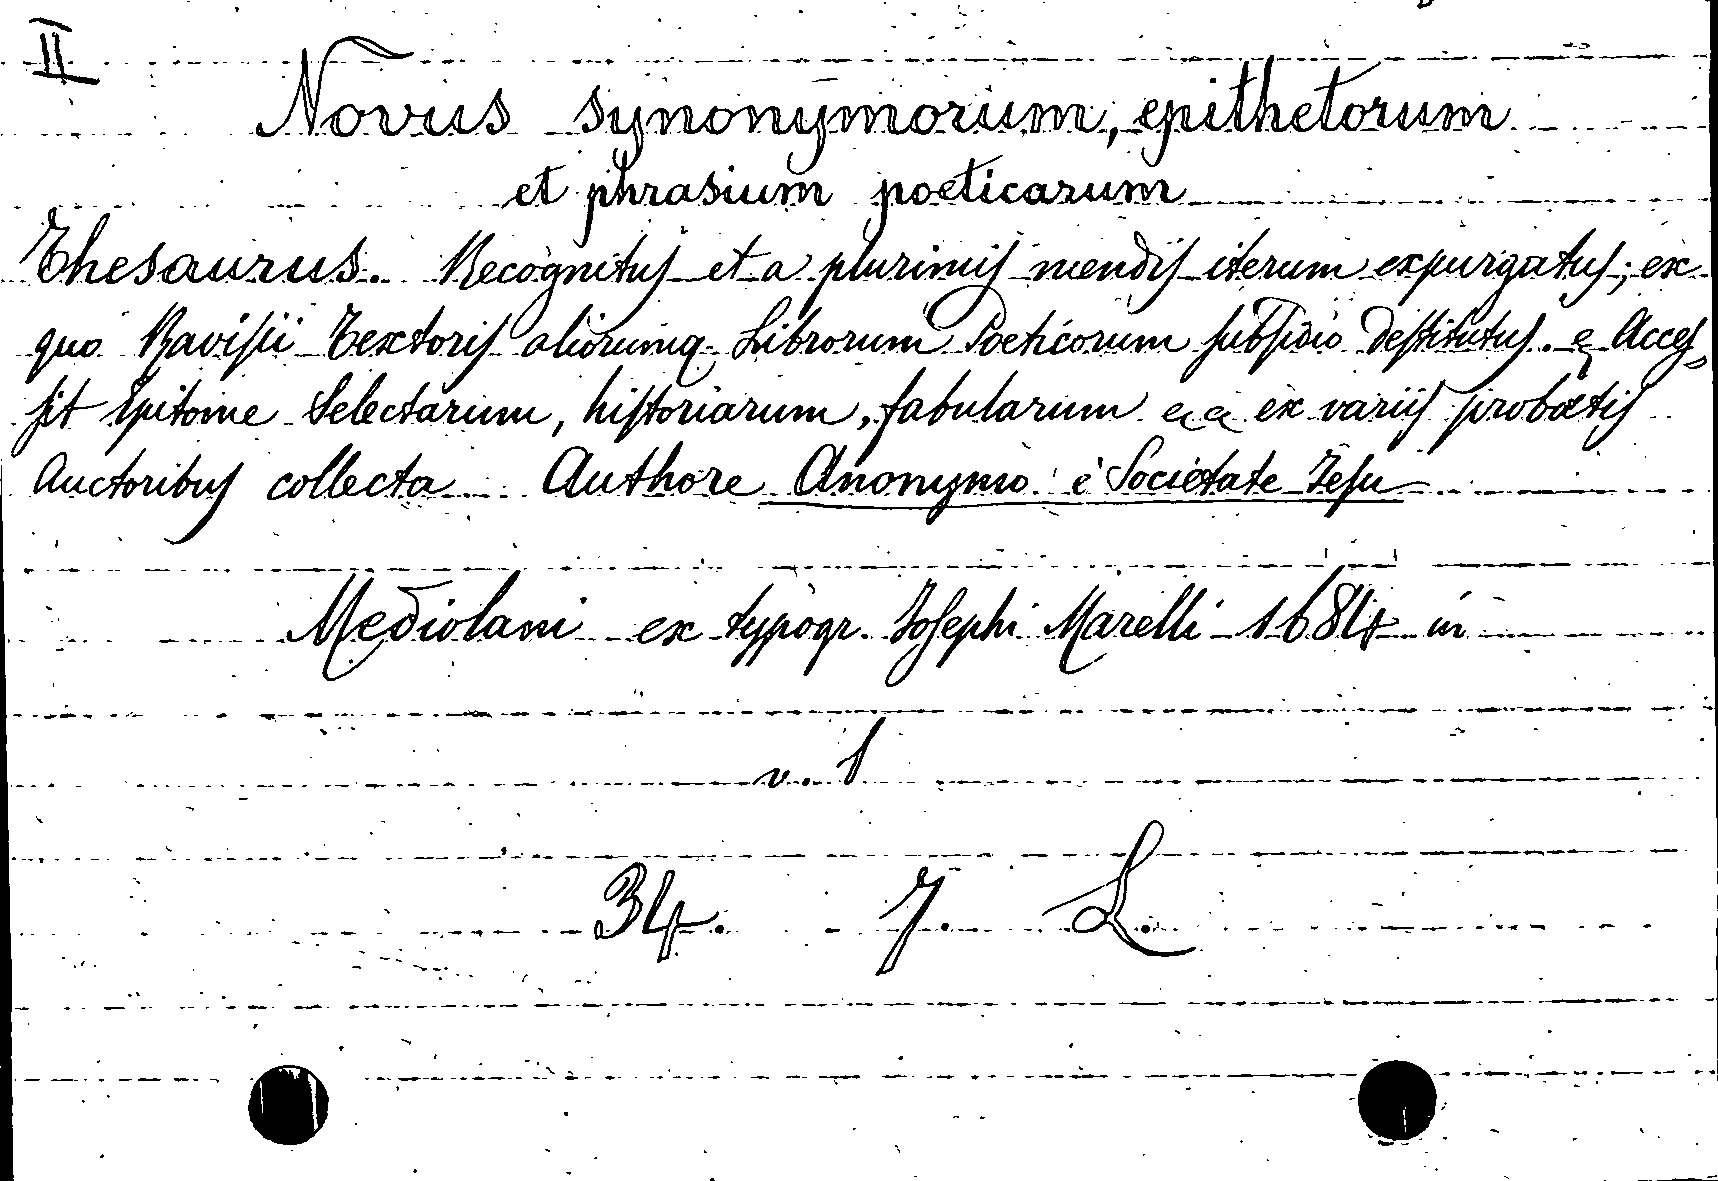 II
Novus synonymorum, epithetorum
et phrasium poeticarum
Thesaurus. Recognitus et a plurimis mendis iterum expurgatus; ex
quo Ravisii Textoris aliorumq. Librorum Poeticorum subsidio destitutus. & Acces-
sit Epitome Selectarum, historiarum, fabularum && ex variis probatis
Auctoribus collecta Authore Anonymo è Societate Jesu
Mediolani ex typogr. Josephi Marelli 1684 in
v. 1
34. 7. L.